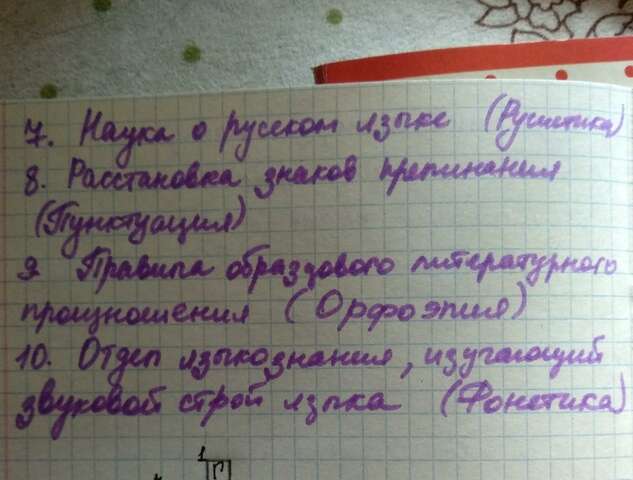 7. Наука о русском языке (Русистика)
8. Расстановка знаков препинания
(Пунктуация)
9 Правила образцового литературного
произношения (Орфоэпия)
10. Отдел языкознания, изучающий
звуковой строй языка (Фонетика)
1
Г